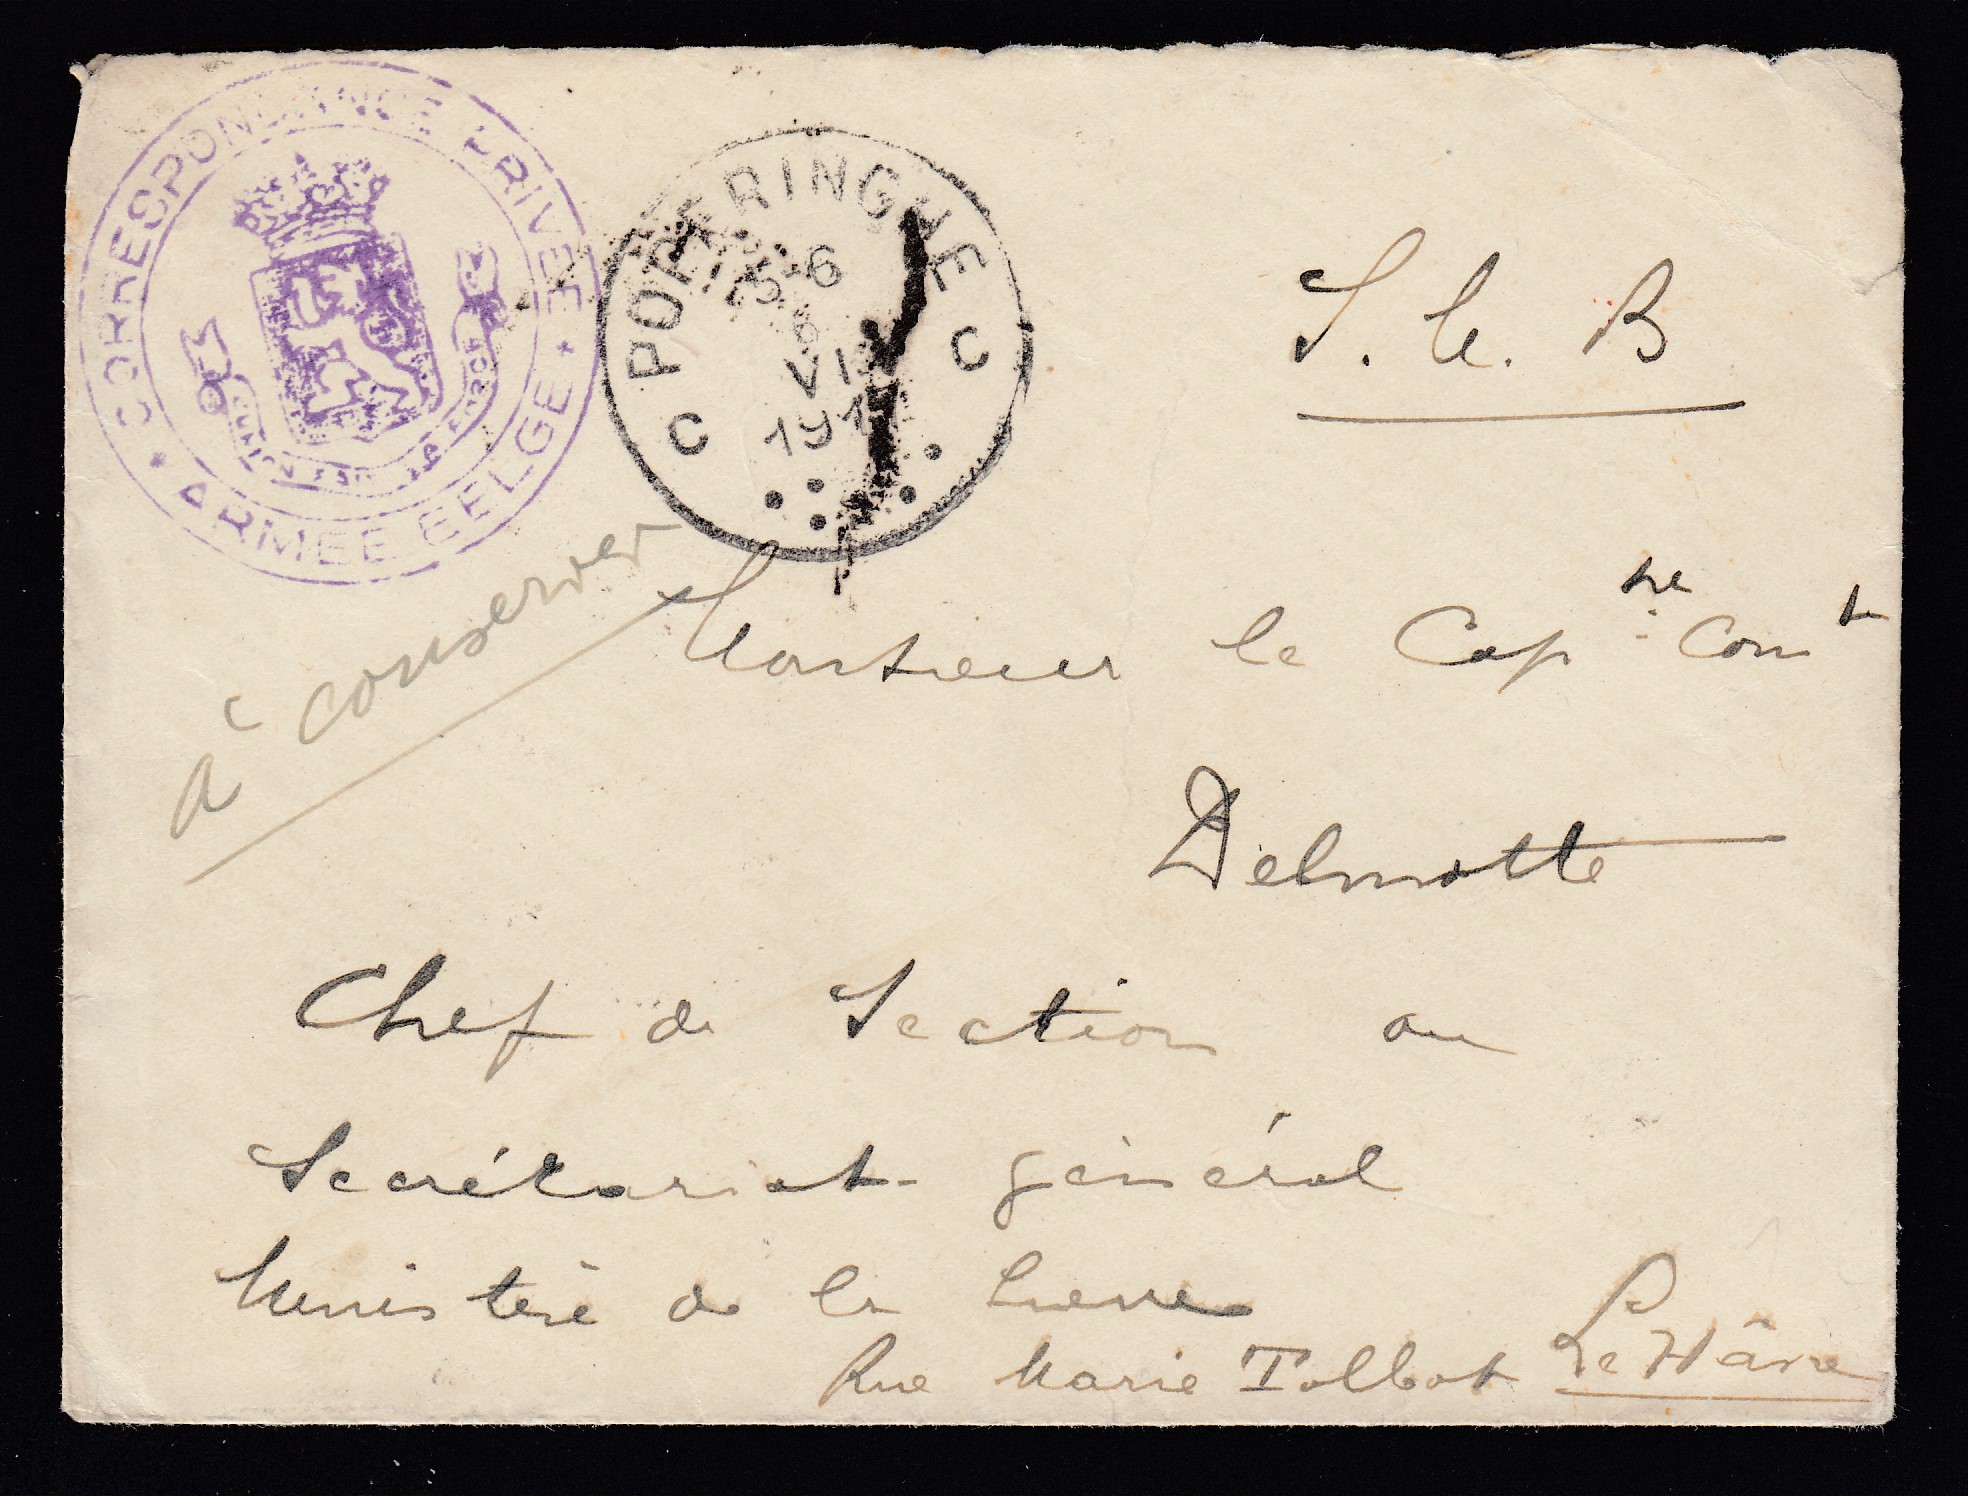 CORRESPONDANCE PRIVEE * ARMEE BELGE *
POPERINGHE
15-6
VI
191
C C
S. M. B
à conserver
Monsieur le Cap ne Com t
Delmotte
Chef de Section au
Secrétariat général
Ministère de la Guerre
Rue Marie Talbot Le Hâvre